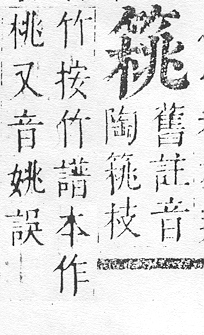 舊註音
陶枝
竹按竹譜本作
桃又音姚誤